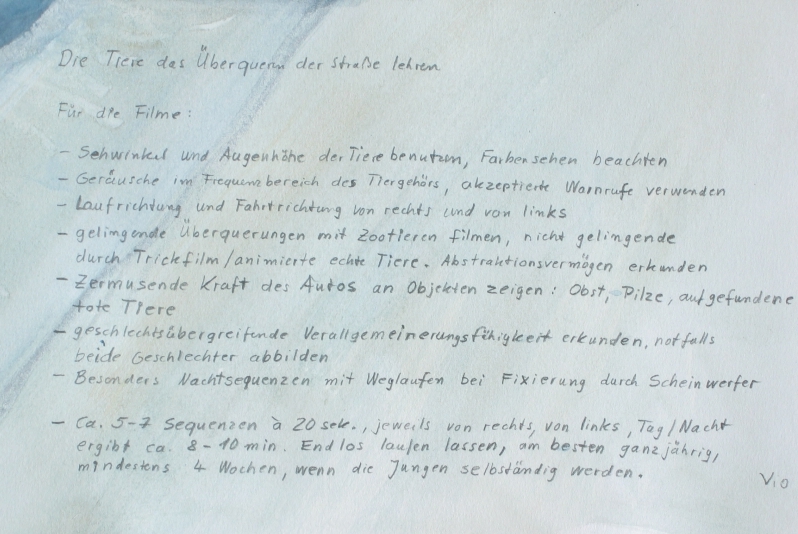 Die Tiere das Überquern der Straße lehren
Für die Filme:
- Sehwinkel und Augenhöhe der Tiere benutzen, Farbensehen beachten
- Geräusche im Frequenzbereich des Tiergehörs, akzeptierte Warnrufe verwenden
- Laufrichtung und Fahrtrichtung von rechts und von links
- gelingende Überquerungen mit Zootieren filmen, nicht gelingende
durch Trickfilm/animierte echte Tiere. Abstraktionsvermögen erkunden
- Zermusende Kraft des Autos an Objekten zeigen: Obst, Pilze, aufgefundene
tote Tiere
- geschlechtsübergreifende Verallgemeinerungsfähigkeit erkunden, notfalls
beide Geschlechter abbilden
- Besonders Nachtsequenzen mit Weglaufen bei Fixierung durch Scheinwerfer
- Ca. 5-7 Sequenzen à 20 sek., jeweils von rechts, von links, Tag/Nacht
ergibt ca. 8-10 min. Endlos laufen lassen, am besten ganzjährig,
mindestens 4 Wochen, wenn die Jungen selbständig werden.
V10